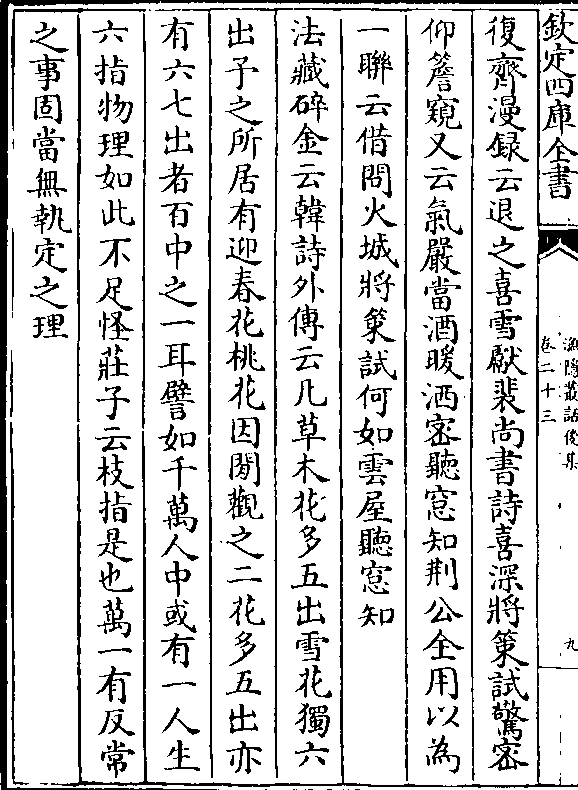 欽定四庫全書
漁隱叢話後集
卷二十三
九
復齊漫録云退之喜雪獻裴尚書詩喜深將策試驚密
仰簷窺又云氣嚴當酒暖洒密聽窓知荆公全用以為
一聯云借問火城將策試何如雲屋聽窓知
法藏碎金云韓詩外傳云凡草木花多五出雪花獨六
出予之所居有迎春花桃花因閒觀之二花多五出亦
有六七出者百中之一耳譬如千萬人中或有一人生
六指物理如此不足怪莊子云枝指是也萬一有反常
之事固當無執定之理